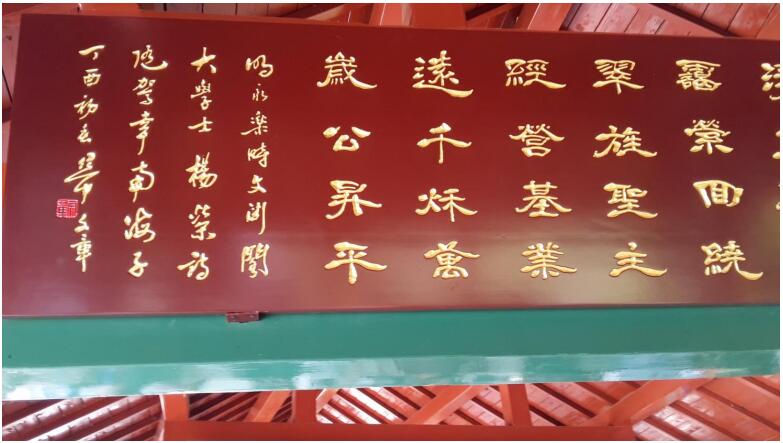 縈囘繞
翠旌聖主
經營基業
遠千秌萬
歲公昇平
明永樂時文淵閣
大學士楊榮詩
隨駕幸南海子
丁酉初春文章